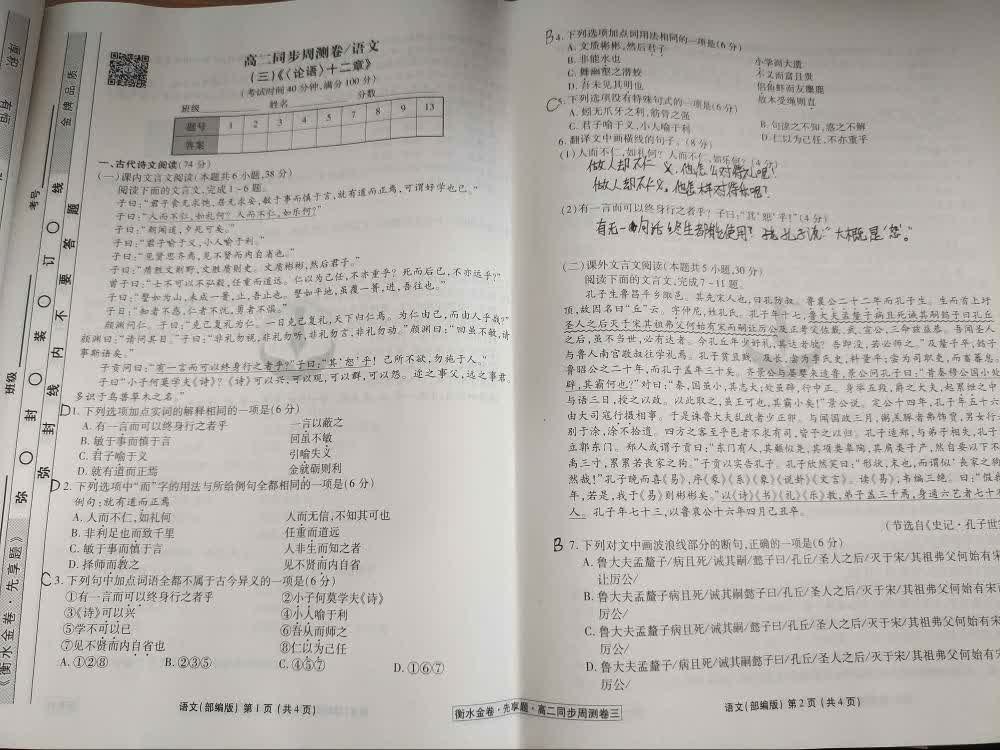 高二同步周测卷/语文
(三)《〈论语〉十二章》
(考试时间40分钟,满分100分)
班级 姓名 分数
题号 1 2 3 4 5 7 8 9 13
答案
金牌品质
考号
班级
弥 封 装 订 线 内 不 要 答 题
《衡水金卷·先享题》
一、古代诗文阅读(74分)
(一)课内文言文阅读(本题共6小题,38分)
阅读下面的文言文,完成1~6题。
子曰:“君子食无求饱,居无求安,敏于事而慎于言,就有道而正焉,可谓好学也已。”
子曰:“人而不仁,如礼何?人而不仁,如乐何?”
子曰:“朝闻道,夕死可矣。”
子曰:“君子喻于义,小人喻于利。”
子曰:“见贤思齐焉,见不贤而内自省也。”
子曰:“质胜文则野,文胜质则史。文质彬彬,然后君子。”
曾子曰:“士不可以不弘毅,任重而道远。仁以为己任,不亦重乎?死而后已,不亦远乎?”
子曰:“譬如为山,未成一篑,止,吾止也。譬如平地,虽覆一篑,进,吾往也。”
子曰:“知者不惑,仁者不忧,勇者不惧。”
颜渊问仁。子曰:“克己复礼为仁。一日克己复礼,天下归仁焉。为仁由己,而由人乎哉?”
颜渊曰:“请问其目。”子曰:“非礼勿视,非礼勿听,非礼勿言,非礼勿动。”颜渊曰:“回虽不敏,请
事斯语矣。”
子贡问曰:“有一言而可以终身行之者乎?”子曰:“其‘恕’乎!己所不欲,勿施于人。”
子曰“小子何莫学夫《诗》?《诗》可以兴,可以观,可以群,可以怨。迩之事父,远之事君。
多识于鸟兽草木之名。”
D 1. 下列选项加点实词的解释相同的一项是(6分)
A. 有一言而可以终身行之者乎 一言以蔽之
B. 敏于事而慎于言 回虽不敏
C. 君子喻于义 引喻失义
D. 就有道而正焉 金就砺则利
D 2. 下列选项中“而”字的用法与所给例句全都相同的一项是(6分)
例句:就有道而正焉
A. 人而不仁,如礼何 人而无信,不知其可也
B. 非利足也而致千里 任重而道远
C. 敏于事而慎于言 人非生而知之者
D. 择师而教之 见不贤而内自省
C 3. 下列句中加点词语全都不属于古今异义的一项是(6分)
①有一言而可以终身行之者乎 ②小子何莫学夫《诗》
③《诗》可以兴 ④小人喻于利
⑤学不可以已 ⑥吾从而师之
⑦见不贤而内自省也 ⑧仁以为己任
A. ①②⑧ B. ②③⑤ C. ④⑤⑦ D. ①⑥⑦
语文(部编版) 第1页(共4页)
B 4. 下列选项加点词用法相同的一项是(6分)
A. 文质彬彬,然后君子 小学而大遗
B. 非能水也 不义而富且贵
C. 舞幽壑之潜蛟 侣鱼虾而友麋鹿
D. 吾未见其明也 故木受绳则直
C 5. 下列选项没有特殊句式的一项是(6分)
A. 蚓无爪牙之利,筋骨之强 B. 句读之不知,惑之不解
C. 君子喻于义,小人喻于利 D. 仁以为己任,不亦重乎
6. 翻译文中画横线的句子。(8分)
(1)人而不仁,如礼何?人而不仁,如乐何?(4分)
做人却不仁义,他怎么对待礼呢?
做人却不仁义。他怎样对待乐呢?
(2)有一言而可以终身行之者乎?子曰:“其‘恕’乎!”(4分)
有无一句话终生都能使用? 孔子说:“大概是‘恕’。”
(二)课外文言文阅读(本题共5小题,30分)
阅读下面的文言文,完成7~11题。
孔子生鲁昌平乡陬邑。其先宋人也,曰孔防叔。鲁襄公二十二年而孔子生。生而首上圩
顶,故因名曰“丘”云。字仲尼,姓孔氏。孔子年十七,鲁大夫孟釐子病且死诫其嗣懿子曰孔丘
圣人之后灭于宋其祖弗父何始有宋而嗣让厉公及正考父佐戴、武、宣公,三命兹益恭。吾闻圣人
之后,虽不当世,必有达者。今孔丘年少好礼,其达者欤?吾即没,若必师之。”及釐子卒,懿子
与鲁人南宫敬叔往学礼焉。孔子贫且贱。及长,尝为季氏史,料量平;尝为司职吏,而畜蕃息。
鲁昭公之二十年,而孔子盖年三十矣。齐景公与晏婴来适鲁,景公问孔子曰:“昔秦穆公国小处
辟,其霸何也?”对曰:“秦,国虽小,其志大;处虽辟,行中正。身举五羖,爵之大夫,起累绁之中
与语三日,授之以政。以此取之,虽王可也,其霸小矣!”景公说。定公十四年,孔子年五十六
由大司寇行摄相事。于是诛鲁大夫乱政者少正卯。与闻国政三月,粥羔豚者弗饰贾,男女行
别于涂,涂不拾遗。四方之客至乎邑者不求有司,皆予之以归。孔子适郑,与弟子相失,孔子
立郭东门。郑人或谓子贡曰:“东门有人,其颡似尧,其项类皋陶,其肩类子产,然自要以下不
禹三寸,累累若丧家之狗。”子贡以实告孔子。孔子欣然笑曰:“形状,末也,而谓似‘丧家之狗
然哉!”孔子晚而喜《易》,序《彖》《系》《象》《说卦》《文言》。读《易》,韦编三绝。曰:“假我
年,若是,我于《易》则彬彬矣。”以《诗》《书》《礼》《乐》教,弟子盖三千焉,身通六艺者七十
人。孔子年七十三,以鲁哀公十六年四月己丑卒。
(节选自《史记·孔子世
B 7. 下列对文中画波浪线部分的断句,正确的一项是(6分)
A. 鲁大夫孟釐子/病且死/诫其嗣/懿子曰/孔丘/圣人之后/灭于宋/其祖弗父何始有宋
让厉公/
B. 鲁大夫孟釐子病且死/诫其嗣懿子曰/孔丘/圣人之后/灭于宋/其祖弗父何始有宋
厉公/
C. 鲁大夫孟釐子病且死/诫其嗣/懿子曰/孔丘/圣人之后/灭于宋/其祖弗父何始有宋
厉公/
D. 鲁大夫孟釐子/病且死/诫其嗣懿子曰/孔丘/圣人之后/灭于宋/其祖弗父何始有
厉公/
衡水金卷·先享题·高二同步周测卷三
语文(部编版) 第2页(共4页)